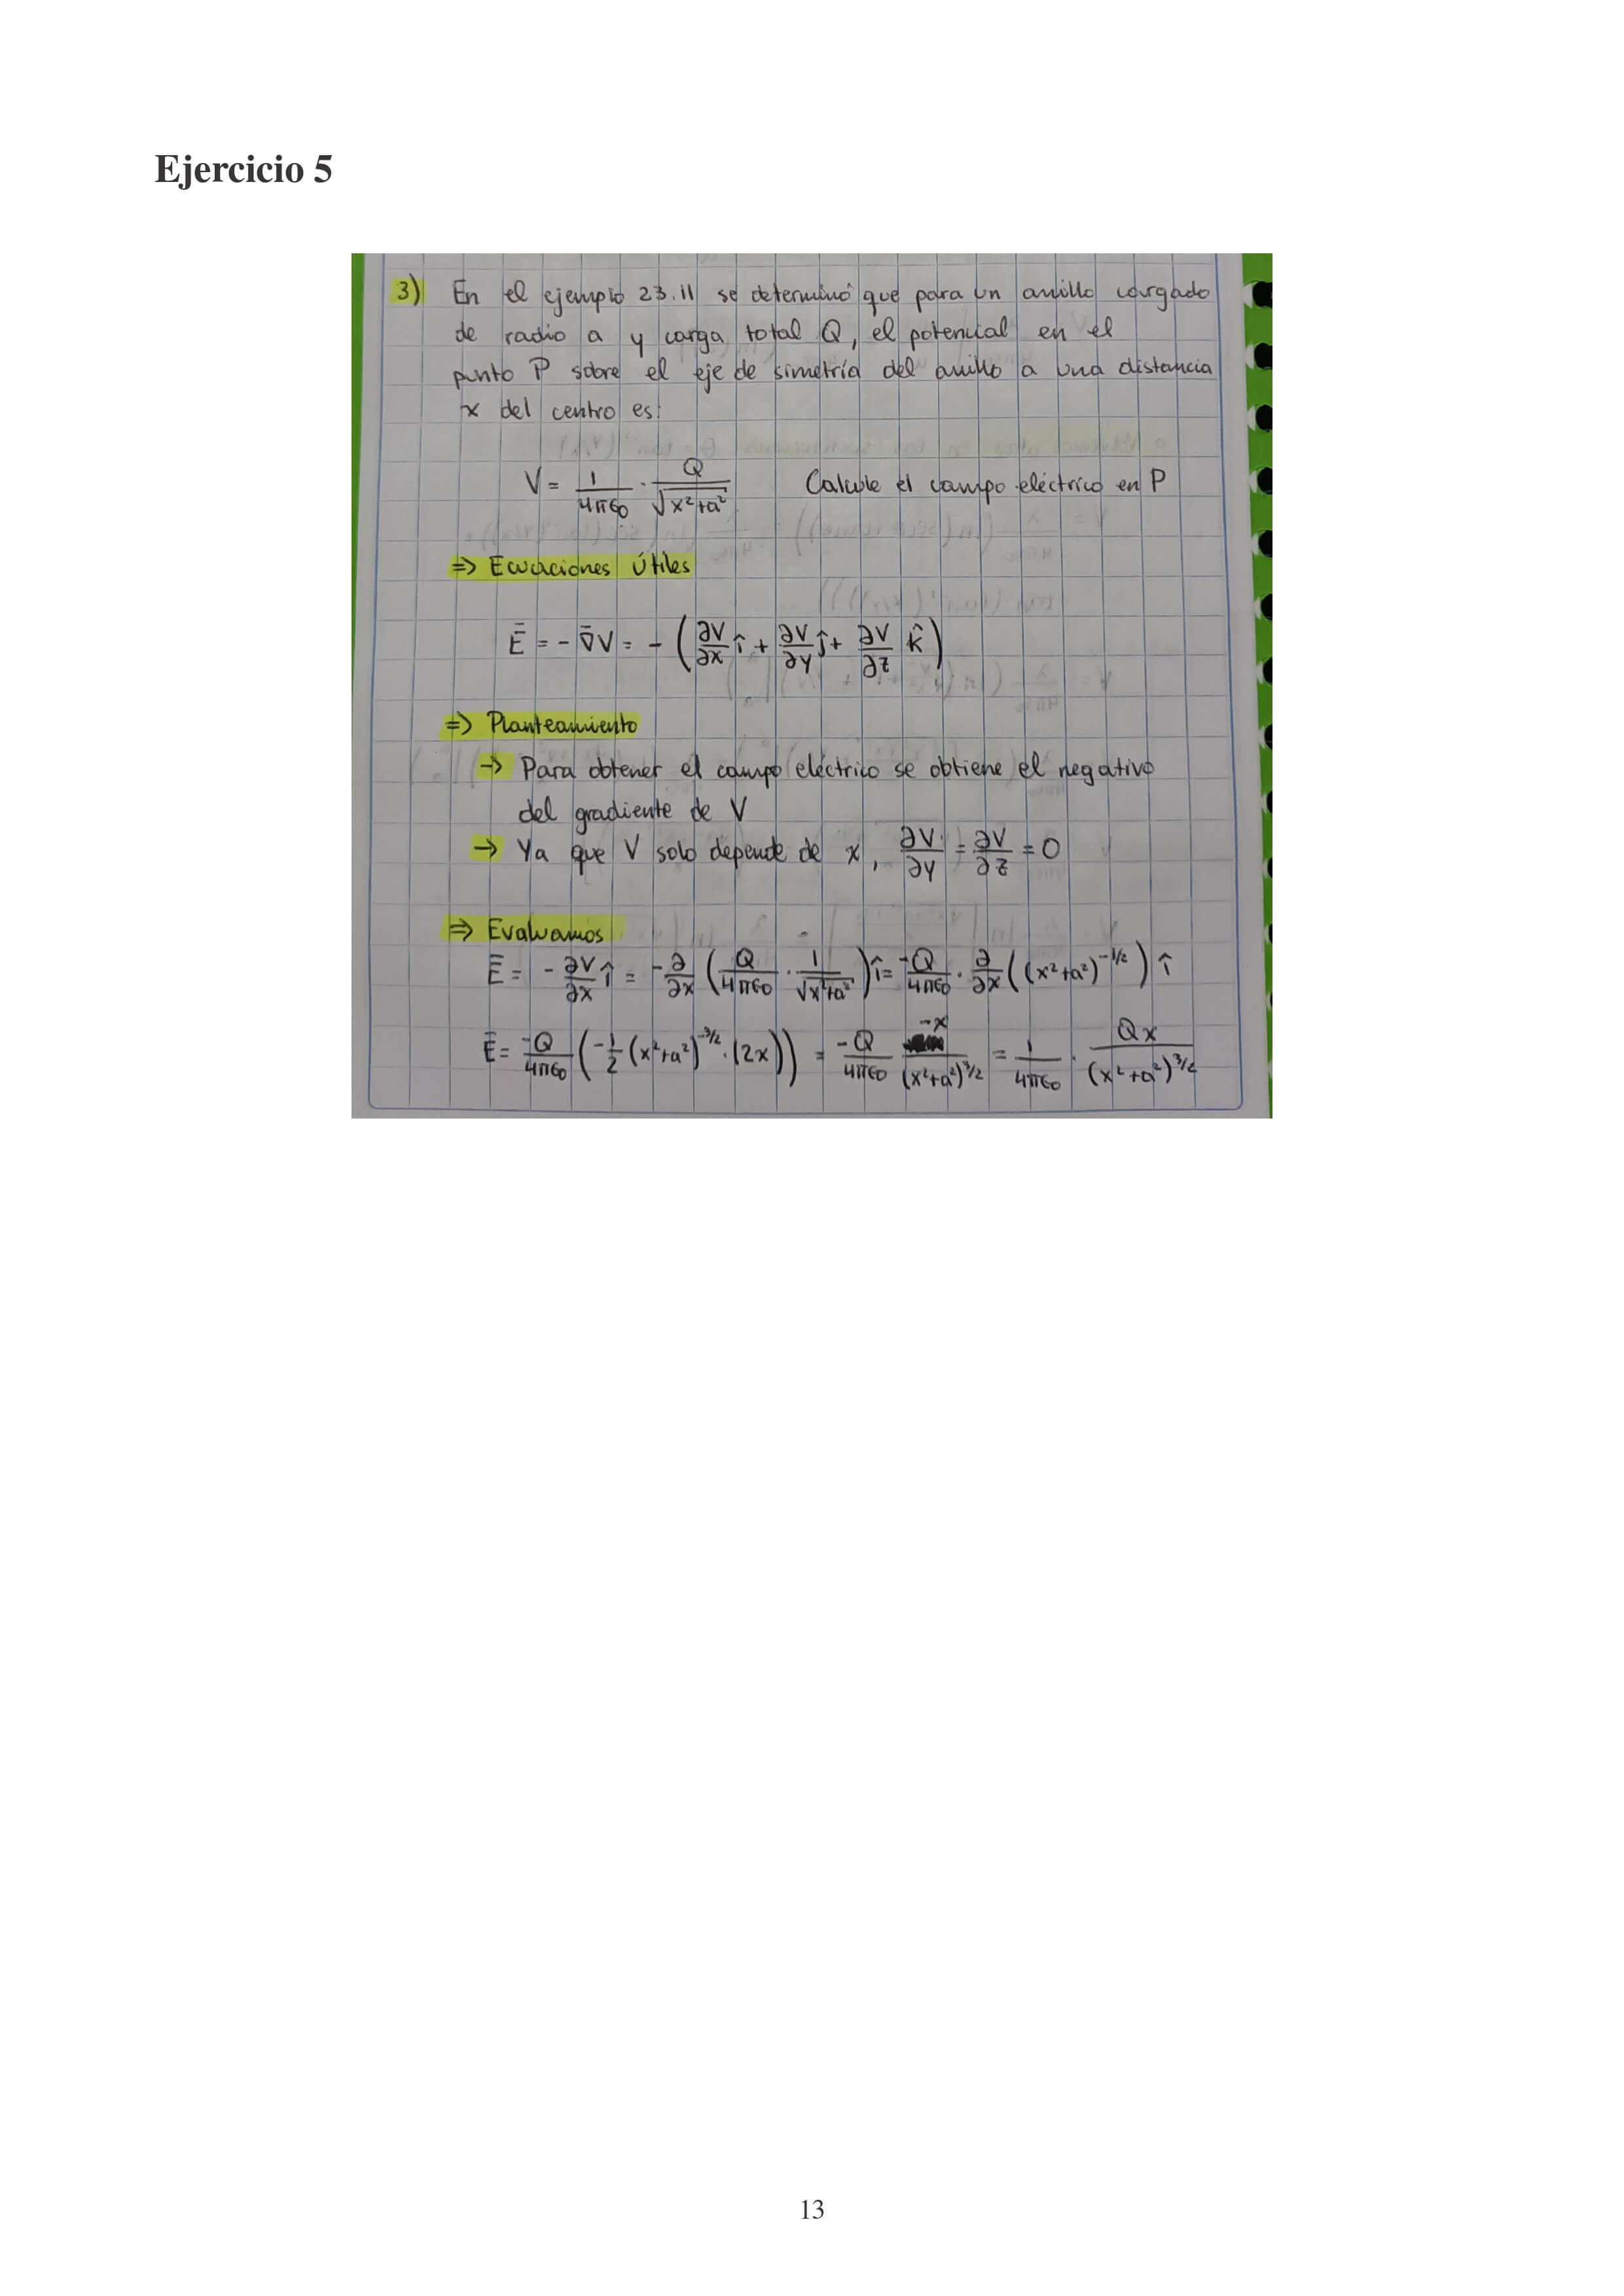 Ejercicio 5
3) En el ejemplo 23.11 se determinó que para un anillo cargado
de radio a y carga total Q, el potencial en el
punto P sobre el eje de simetría del anillo a una distancia
x del centro es:
V = 1/(4πϵ₀) · Q/√(x²+a²) Calcule el campo eléctrico en P
=> Ecuaciones Útiles
Ē = - ∇̄V = - (∂V/∂x î + ∂V/∂y ĵ + ∂V/∂z k̂)
=> Planteamiento
-> Para obtener el campo eléctrico se obtiene el negativo
del gradiente de V
-> Ya que V solo depende de x, ∂V/∂y = ∂V/∂z = 0
=> Evaluamos
Ē = - ∂V/∂x î = -∂/∂x (Q/(4πϵ₀) · 1/√(x²+a²)) î = -Q/(4πϵ₀) · ∂/∂x ((x²+a²)^(-1/2)) î
Ē = -Q/(4πϵ₀) (-1/2 (x²+a²)^(-3/2) · (2x)) = -Q/(4πϵ₀) -x/(x²+a²)^(3/2) = 1/(4πϵ₀) · Qx/(x²+a²)^(3/2)
13